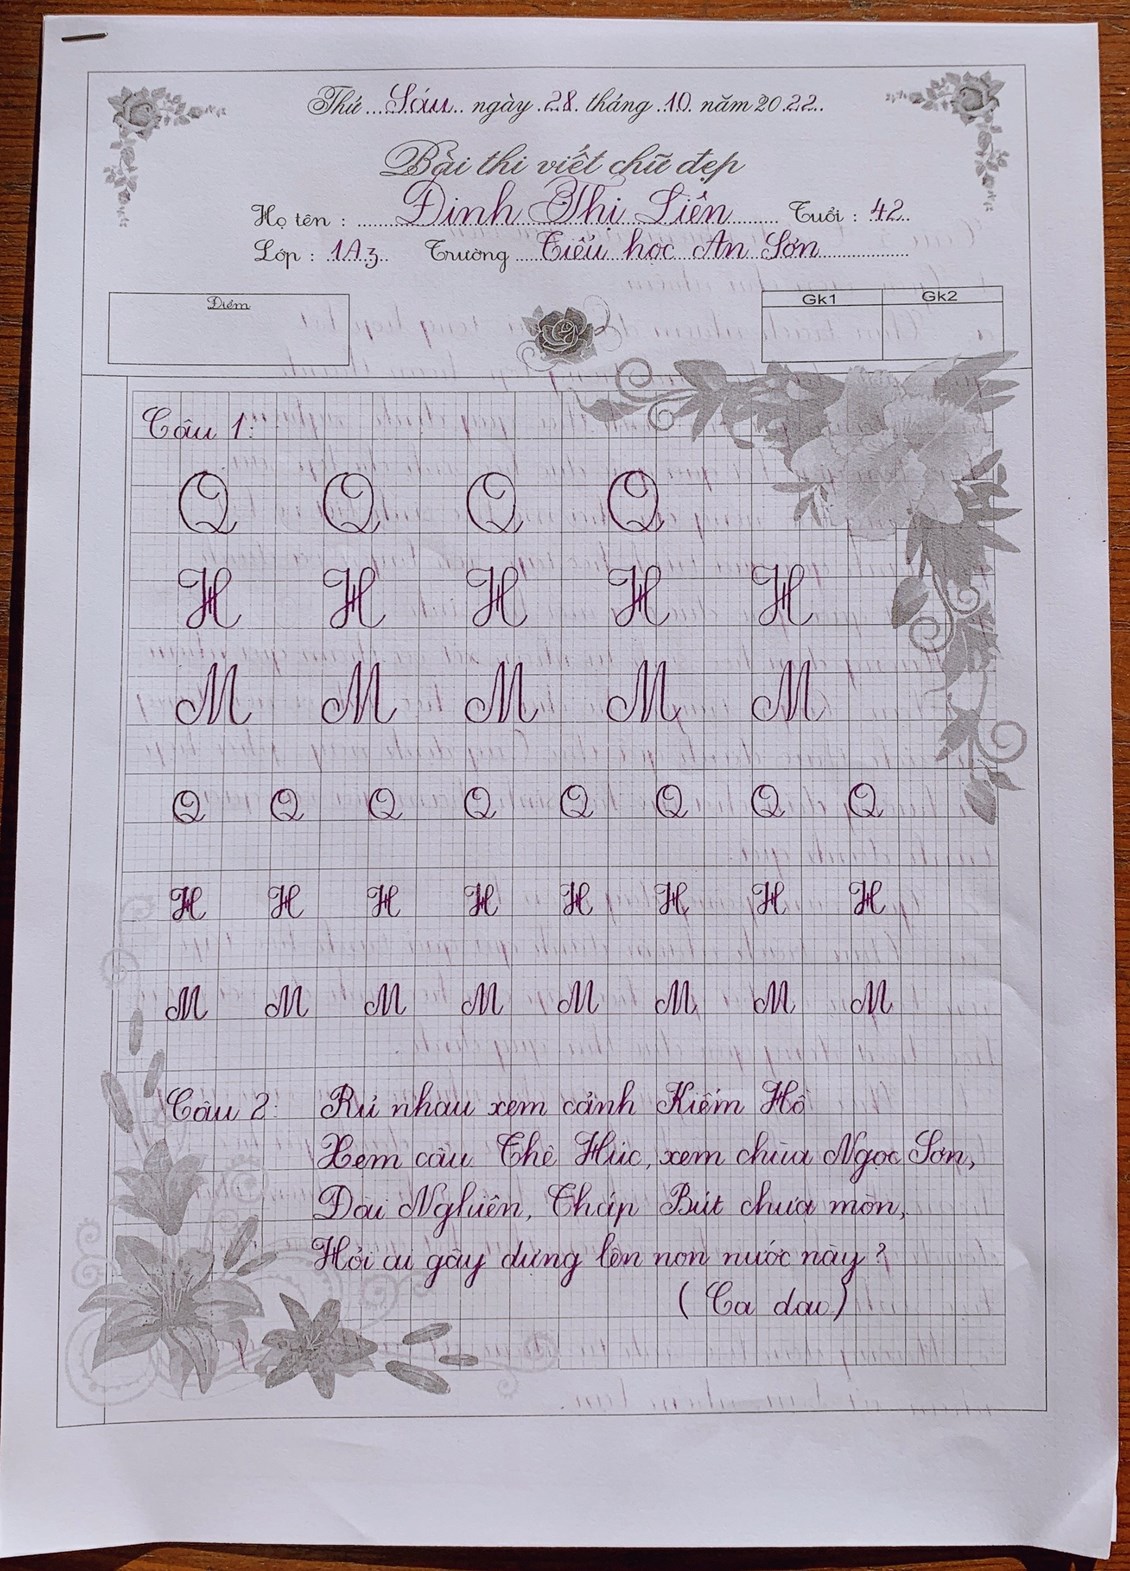 Thứ Sáu ngày 28 tháng 10 năm 2022
Bài thi viết chữ đẹp
Họ tên : Đinh Thị Liên Tuổi : 42
Lớp : 1A3 Trường Tiểu học An Sơn
Điểm
Gk1 Gk2
Câu 1:
Q Q Q Q
H H H H H
M M M M M
Q Q Q Q Q Q Q Q
H H H H H H H H
M M M M M M M M
Câu 2: Rủ nhau xem cảnh Kiếm Hồ
Xem cầu Thê Húc, xem chùa Ngọc Sơn,
Đài Nghiên, Tháp Bút chưa mòn,
Hỏi ai gây dựng lên non nước này?
( Ca dao)